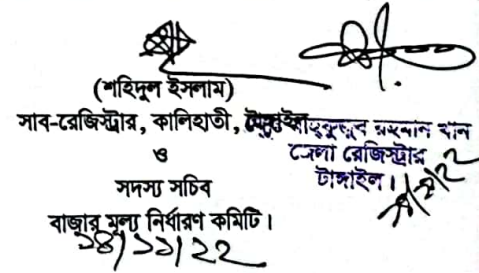 (শহিদুল ইসলাম)
সাব-রেজিস্ট্রার, কালিহাতী, টাঙ্গাইল
ও
সদস্য সচিব
বাজার মূল্য নির্ধারণ কমিটি।
১৪/১১/২২
রহমান খান
জেলা রেজিস্ট্রার
টাঙ্গাইল।